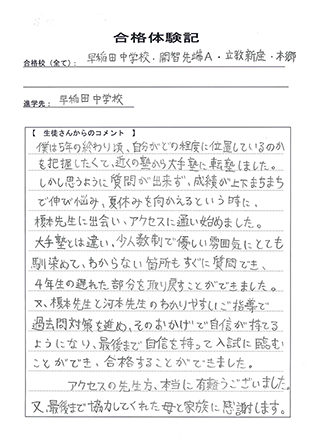 合格体験記
合格校（全て）： 早稲田中学校・開智先端A・立教新座・本郷
進学先： 早稲田中学校
【 生徒さんからのコメント 】
僕は5年の終わり頃、自分がどの程度に位置しているのか
を把握したくて、近くの塾から大手塾に転塾しました。
しかし思うように質問が出来ず、成績が上下まちまち
で伸び悩み、夏休みを向かえるという時に、
榎本先生に出会い、アクセスに通い始めました。
大手塾とは違い、少人数制で優しい雰囲気にとても
馴染めて、わからない箇所もすぐに質問でき、
4年生の遅れた部分を取り戻すことができました。
又、榎本先生と河本先生のわかりやすいご指導で
過去問対策を進め、そのおかげで自信が持てる
ようになり、最後まで自信を持って入試に臨む
ことができ、合格することができました。
アクセスの先生方、本当に有難うございました。
又、最後まで協力してくれた母と家族に感謝します。